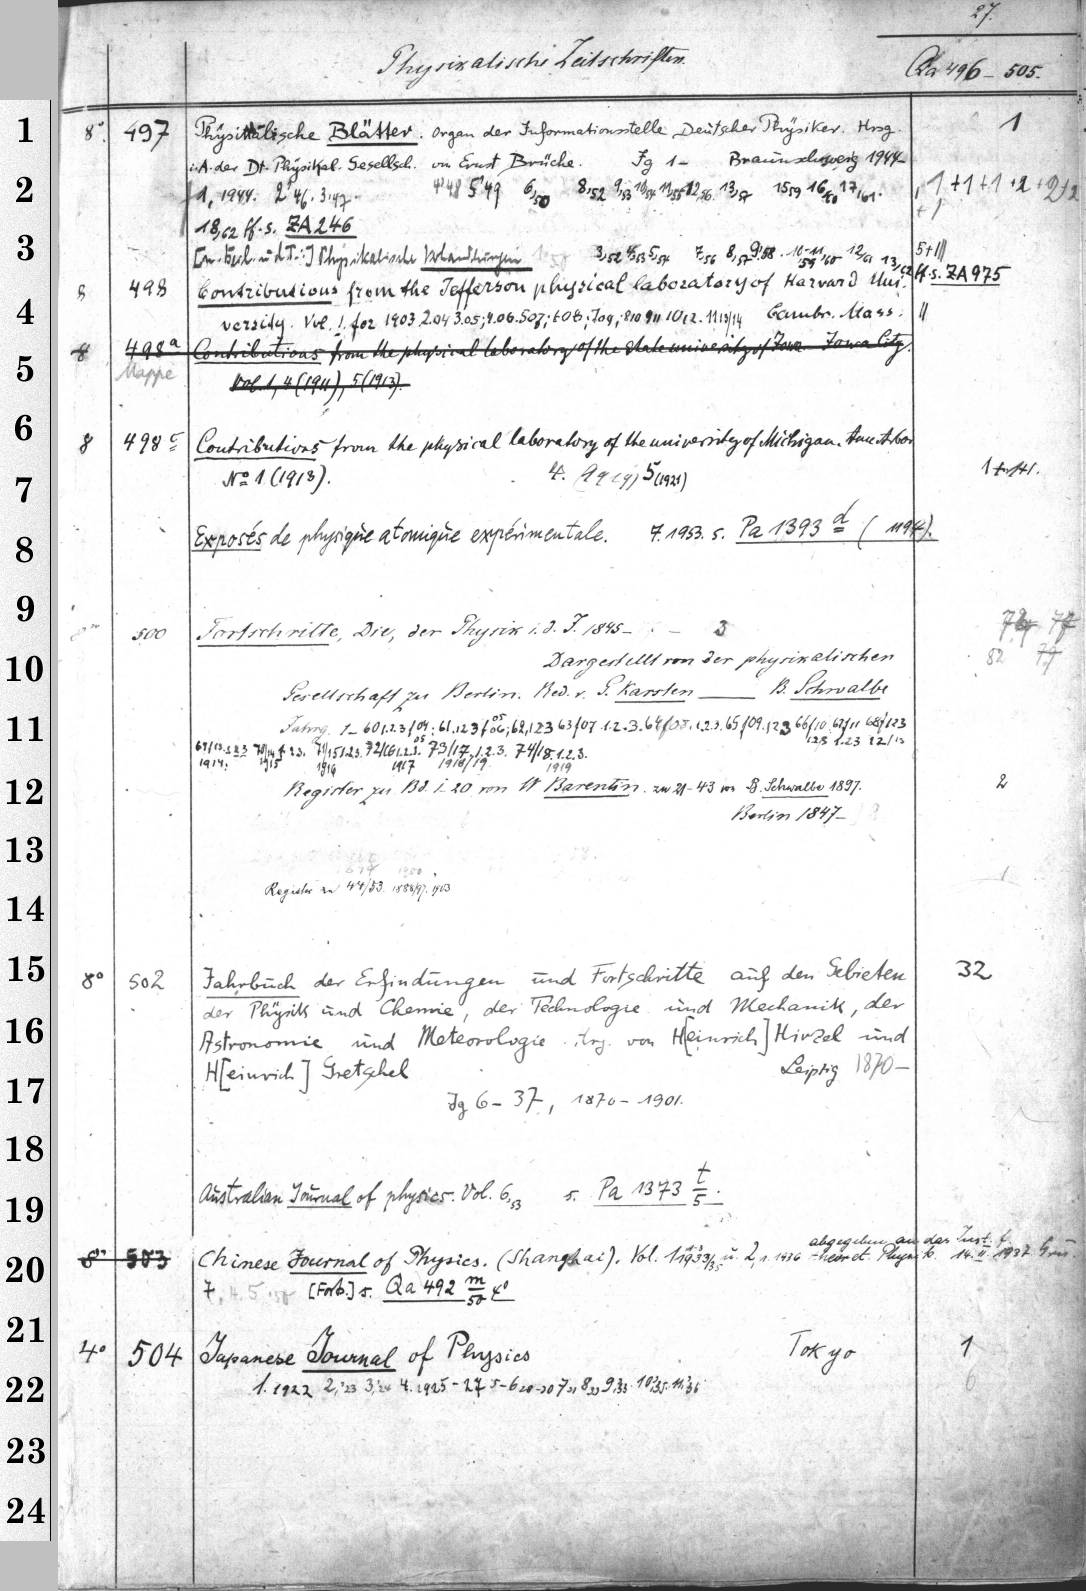 27.
Physikalische Zeitschriften.
Qa 496 – 505.
8°. 497 Physikalische Blätter. Organ der Informationsstelle Deutscher Physiker. Hrsg. 1
i. A. der Dt. Physikal. Gesellsch. von Ernst Brüche. Jg 1 – Braunschweig 1944–
1, 1944. 2'46. 3.47. 4'48 5'49 6,50 8,52 9,53 10,54 11,55 12,56. 13,57 15,59 16,60 17,61. 1+1+1+2+2+2
18,62 ff. s. ZA 246 +1
Physikalische Verhandlungen 3,52 4,53 5,54 7,56 8,57 9,58. 10-11,59/60 12,61 13,62 ff. s. ZA 975 5+III
8 498 Contributions from the Jefferson physical laboratory of Harvard Uni-
versity. Vol. 1. for 1903 2.04 3.05; 4.06. 5.07; Cambr. Mass. II
8 498a Contributions from the physical laboratory of the state university of Iowa. Iowa City.
Mappe Vol. 1, 4 (1911), 5 (1913).
8 498c Contributions from the physical laboratory of the university of Michigan. Ann Arbor
No 1 (1913). 4. 5 (1921) 1
Exposés de physique atomique expérimentale. 7. 1953. s. Pa 1393 d (1194).
500 Fortschritte, Die, der Physik i. d. J. 1845 – 3
Dargestellt von der physikalischen 82
Gesellschaft zu Berlin. Red. v. G. Karsten —— B. Schwalbe
Jahrg. 1 – 60 1.2.3/04; 61.1 2 3/05; 62, 1 2 3 63/07 1.2.3. 64/08. 1.2.3. 65/09. 1 2 3 66/10 67/11 68/12
69/13. 1 2 3 70/14 1 2 3. 71/15 1.2.3. 72/16 1.2.3. 73/17 1.2.3. 74/18 1.2.3.
1914. 1915 1916 1917 1918/19 1919
Register zu Bd. 1–20 von W Barentin. zu 21–43 von B. Schwalbe 1897. 2
Berlin 1847–
Register zu 44/53. 1888/97. 1903
8° 502 Jahrbuch der Erfindungen und Fortschritte auf den Gebieten 32
der Physik und Chemie, der Technologie und Mechanik, der
Astronomie und Meteorologie. Hrg. von H[einrich] Hirzel und
H[einrich] Gretschel Leipzig 1870–
Jg 6 – 37, 1870 – 1901.
Australian Journal of physics. Vol. 6,53 s. Pa 1373 t/5.
8° 503 Chinese Journal of Physics. (Shanghai). Vol. 1, 1933/35 u. 2, 1. 1936 abgegeben an das Inst. f. theoret. Physik. 14. II. 1937
7, [Forts.] s. Qa 492 m/50 4°
4° 504 Japanese Journal of Physics Tokyo 1
1. 1922 2,'23 3,'24 4. 1925–27 5–6 7,31 8,33 9,33. 10,35. 11,36 6
1
2
3
4
5
6
7
8
9
10
11
12
13
14
15
16
17
18
19
20
21
22
23
24